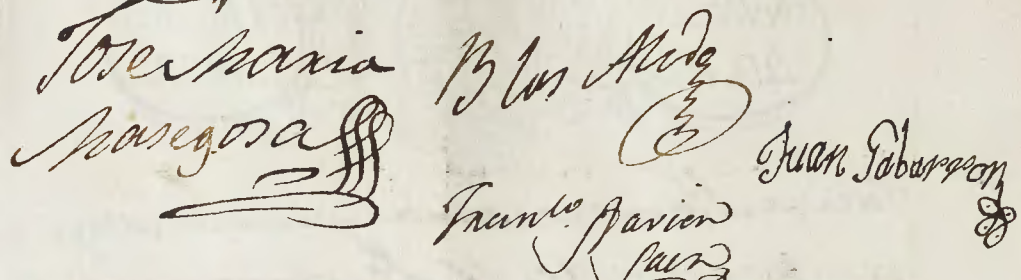 Jose Maria
Masegosa
Blas
Juan Tabarron
Franco. Xavier